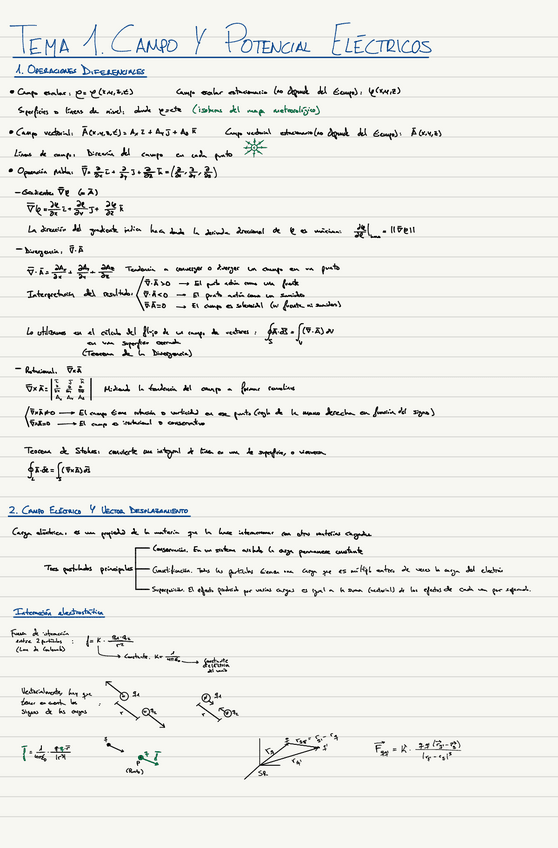 TEMA 1. CAMPO Y POTENCIAL ELÉCTRICOS
1. OPERACIONES DIFERENCIALES
• Campo escalar: φ = φ(x,y,z,t) Campo escalar estacionario (no depende del tiempo): φ(x,y,z)
Superficies o líneas de nivel: donde φ=cte (isobaras del mapa meteorológico)
• Campo vectorial: Ā(x,y,z,t) = Ax ī + Ay j̄ + Az k̄ Campo vectorial estacionario (no depende del tiempo): Ā(x,y,z)
Líneas de campo: Dirección del campo en cada punto
• Operador nabla: ∇̄ = ∂/∂x ī + ∂/∂y j̄ + ∂/∂z k̄ = (∂/∂x, ∂/∂y, ∂/∂z)
- Gradiente ∇̄φ
∇̄φ = ∂φ/∂x ī + ∂φ/∂y j̄ + ∂φ/∂z k̄
La dirección del gradiente indica hacia donde la derivada direccional de φ es máxima: = ||∇̄φ||
- Divergencia, ∇̄·Ā
∇̄·Ā = ∂Ax/∂x + ∂Ay/∂y + ∂Az/∂z Tendencia a converger o diverger un campo en un punto
∇̄·Ā>0 → El punto actúa como una fuente
Interpretación del resultado: ∇̄·Ā<0 → El punto actúa como un sumidero
∇̄·Ā=0 → El campo es solenoidal (ni fuente ni sumidero)
Lo utilizamos en el cálculo del flujo de un campo de vectores: ∮s Ā·ds̄ = ∫v (∇̄·Ā) dv
en una superficie cerrada
(Teorema de la Divergencia)
- Rotacional, ∇̄×Ā
∇̄×Ā = | ī j̄ k̄ | Midiendo la tendencia del campo a formar remolinos
∂/∂x ∂/∂y ∂/∂z
Ax Ay Az
∇̄×Ā≠0 → El campo tiene rotación o vorticidad en ese punto (regla de la mano derecha en función del signo)
∇̄×Ā=0 → El campo es irrotacional o conservativo
Teorema de Stokes: convierte una integral de línea en una de superficie, o viceversa
∮L Ā·dl̄ = ∫s (∇̄×Ā) ds̄
2. CAMPO ELÉCTRICO Y VECTOR DESPLAZAMIENTO
Carga eléctrica: es una propiedad de la materia que la hace interaccionar con otra materia cargada
Conservación. En un sistema aislado la carga permanece constante
Tres postulados principales Cuantificación. Todas las partículas tienen una carga que es múltiplo entero de veces la carga del electrón
Superposición. El efecto producido por varias cargas es igual a la suma (vectorial) de los efectos de cada una por separado.
Interacción electrostática
Fuerza de interacción
entre 2 partículas : f = K · q₁·q₂/r²
(Ley de Coulomb)
Constante. K = 1/4πε₀ → Constante
dieléctrica
del vacío
Vectorialmente, hay que
tener en cuenta los :
signos de las cargas
q₁
r
q₂
q₁
r
q₂
f̄ = 1/4πε₀ · q·q' r̄/|r|³
q
q' f̄
P
r_qq' = r_q' - r_q
r_q
q
q'
r_q'
SR
F̄_qq' = K · q·q' (r̄_q' - r̄_q)/|r_q' - r_q|³